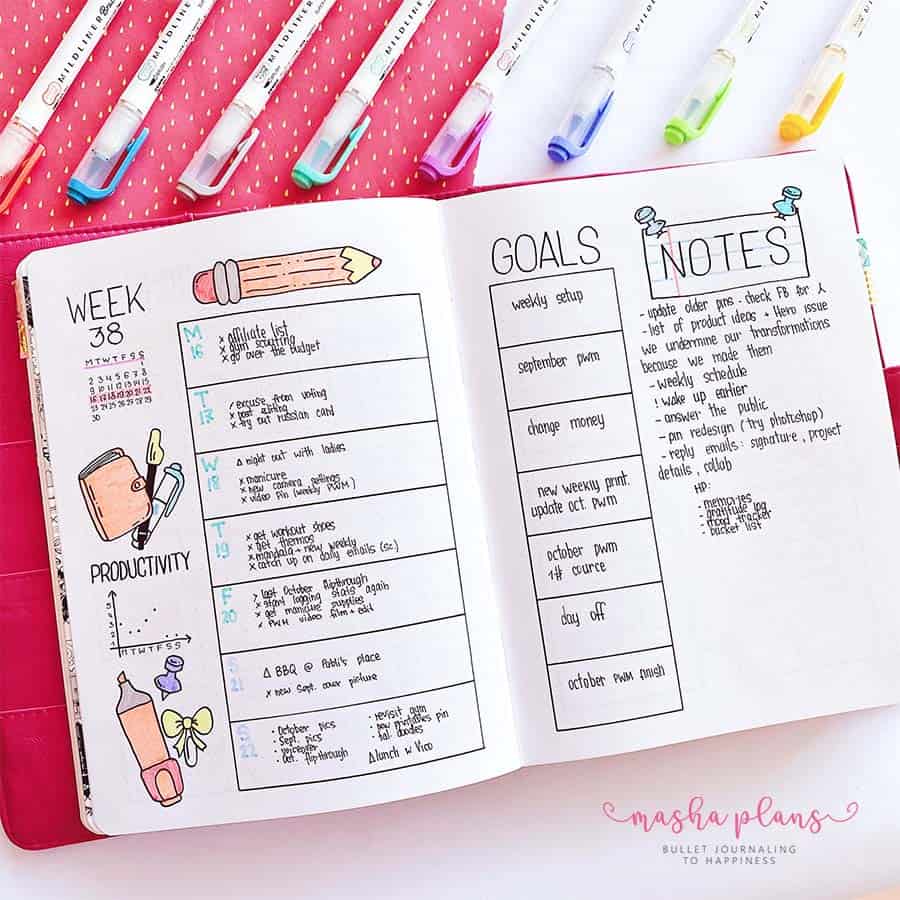 MILDLINER Brush
MILDLINER
MILDLINER
MILDLINER
MILDLINER
WEEK
38
M T W T F S S
1
2 3 4 5 6 7 8
9 10 11 12 13 14 15
16 17 18 19 20 21 22
23 24 25 26 27 28 29
30
PRODUCTIVITY
M T W T F S S
M
16
x affiliate list
x gym scouting
x go over the budget
T
17
/ excuse from voting
x post editing
x try out russian card
W
18
Δ night out with ladies
x manicure
x new camera settings
x video pin (weekly PWM)
T
19
x get workout shoes
x get thermos
x mandala + new weekly
x catch up on daily emails (sc.)
F
20
> last October flipthrough
x start logging stats again
x get manicure supplies
x PWM video film + edit
S
21
Δ BBQ @ Pabli's place
x new Sept. cover picture
S
22
• October pics
• Sept. pics
• Oct. flipthrough
• revisit gym
• new printables pin
• hal. doodles
Δ lunch w Vico
GOALS
weekly setup
september pwm
change money
new weekly print.
update oct. pwm
october pwm
1# cource
day off
october PWM finish
NOTES
- update older pins - check FB for
- list of product ideas + Hero issue
we undermine our transformations
because we made them
- weekly schedule
! wake up earlier
- answer the public
- pin redesign (try photoshop)
- reply emails: signature, project
details, collab
HP:
- memories
- gratitude log
- mood tracker
- bucket list
masha plans
BULLET JOURNALING
TO HAPPINESS